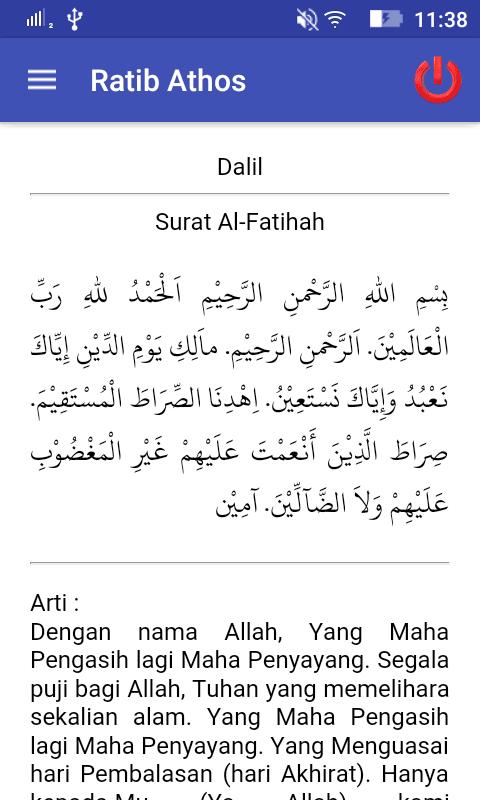 2
11:38
Ratib Athos
Dalil
Surat Al-Fatihah
بِسْمِ اللهِ الرَّحْمنِ الرَّحِيْمِ اَلْحَمْدُ للهِ رَبِّ
الْعَالَمِيْنَ. اَلرَّحْمنِ الرَّحِيْمِ. ماَلِكِ يَوْمِ الدِّيْنِ إِيَّاكَ
نَعْبُدُ وَإِيَّاكَ نَسْتَعِيْنُ. اِهْدِنَا الصِّرَاطَ الْمُسْتَقِيْمَ.
صِرَاطَ الَّذِيْنَ أَنْعَمْتَ عَلَيْهِمْ غَيْرِ الْمَغْضُوْبِ
عَلَيْهِمْ وَلاَ الضَّآلِّيْنَ. آمِيْن
Arti :
Dengan nama Allah, Yang Maha
Pengasih lagi Maha Penyayang. Segala
puji bagi Allah, Tuhan yang memelihara
sekalian alam. Yang Maha Pengasih
lagi Maha Penyayang. Yang Menguasai
hari Pembalasan (hari Akhirat). Hanya
kepada-Mu (Ya Allah) kami